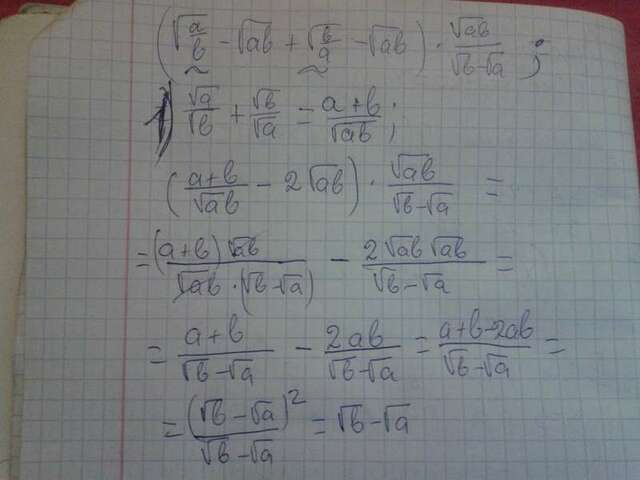 (√a/b - √ab + √b/a - √ab) · √ab/(√b-√a) ;
1) √a/√b + √b/√a = (a+b)/√ab ;
((a+b)/√ab - 2√ab) · √ab/(√b-√a) =
= (a+b)√ab/(√ab·(√b-√a)) - 2√ab√ab/(√b-√a) =
= (a+b)/(√b-√a) - 2ab/(√b-√a) = (a+b-2ab)/(√b-√a) =
= (√b-√a)²/(√b-√a) = √b-√a